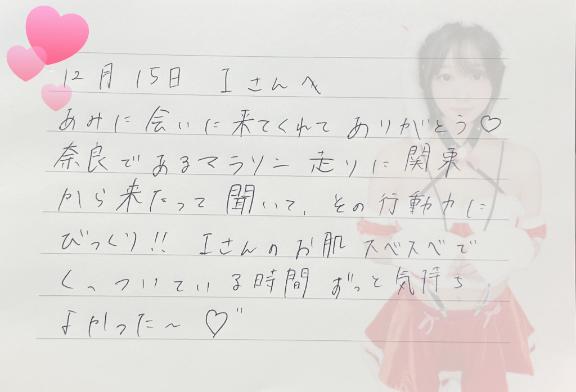 12月 15日 Iさんへ
あみに会いに来てくれて ありがとう♡
奈良であるマラソン走りに関東
から来たって聞いて、その行動力に
びっくり!! Iさんのお肌スベスベで
くっついている時間ずっと気持ち
よかった〜♡"